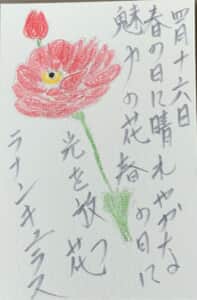 四月十六日
春の日に晴れやかな
魅力の花春の日に
光を放つ花
ラナンキュラス